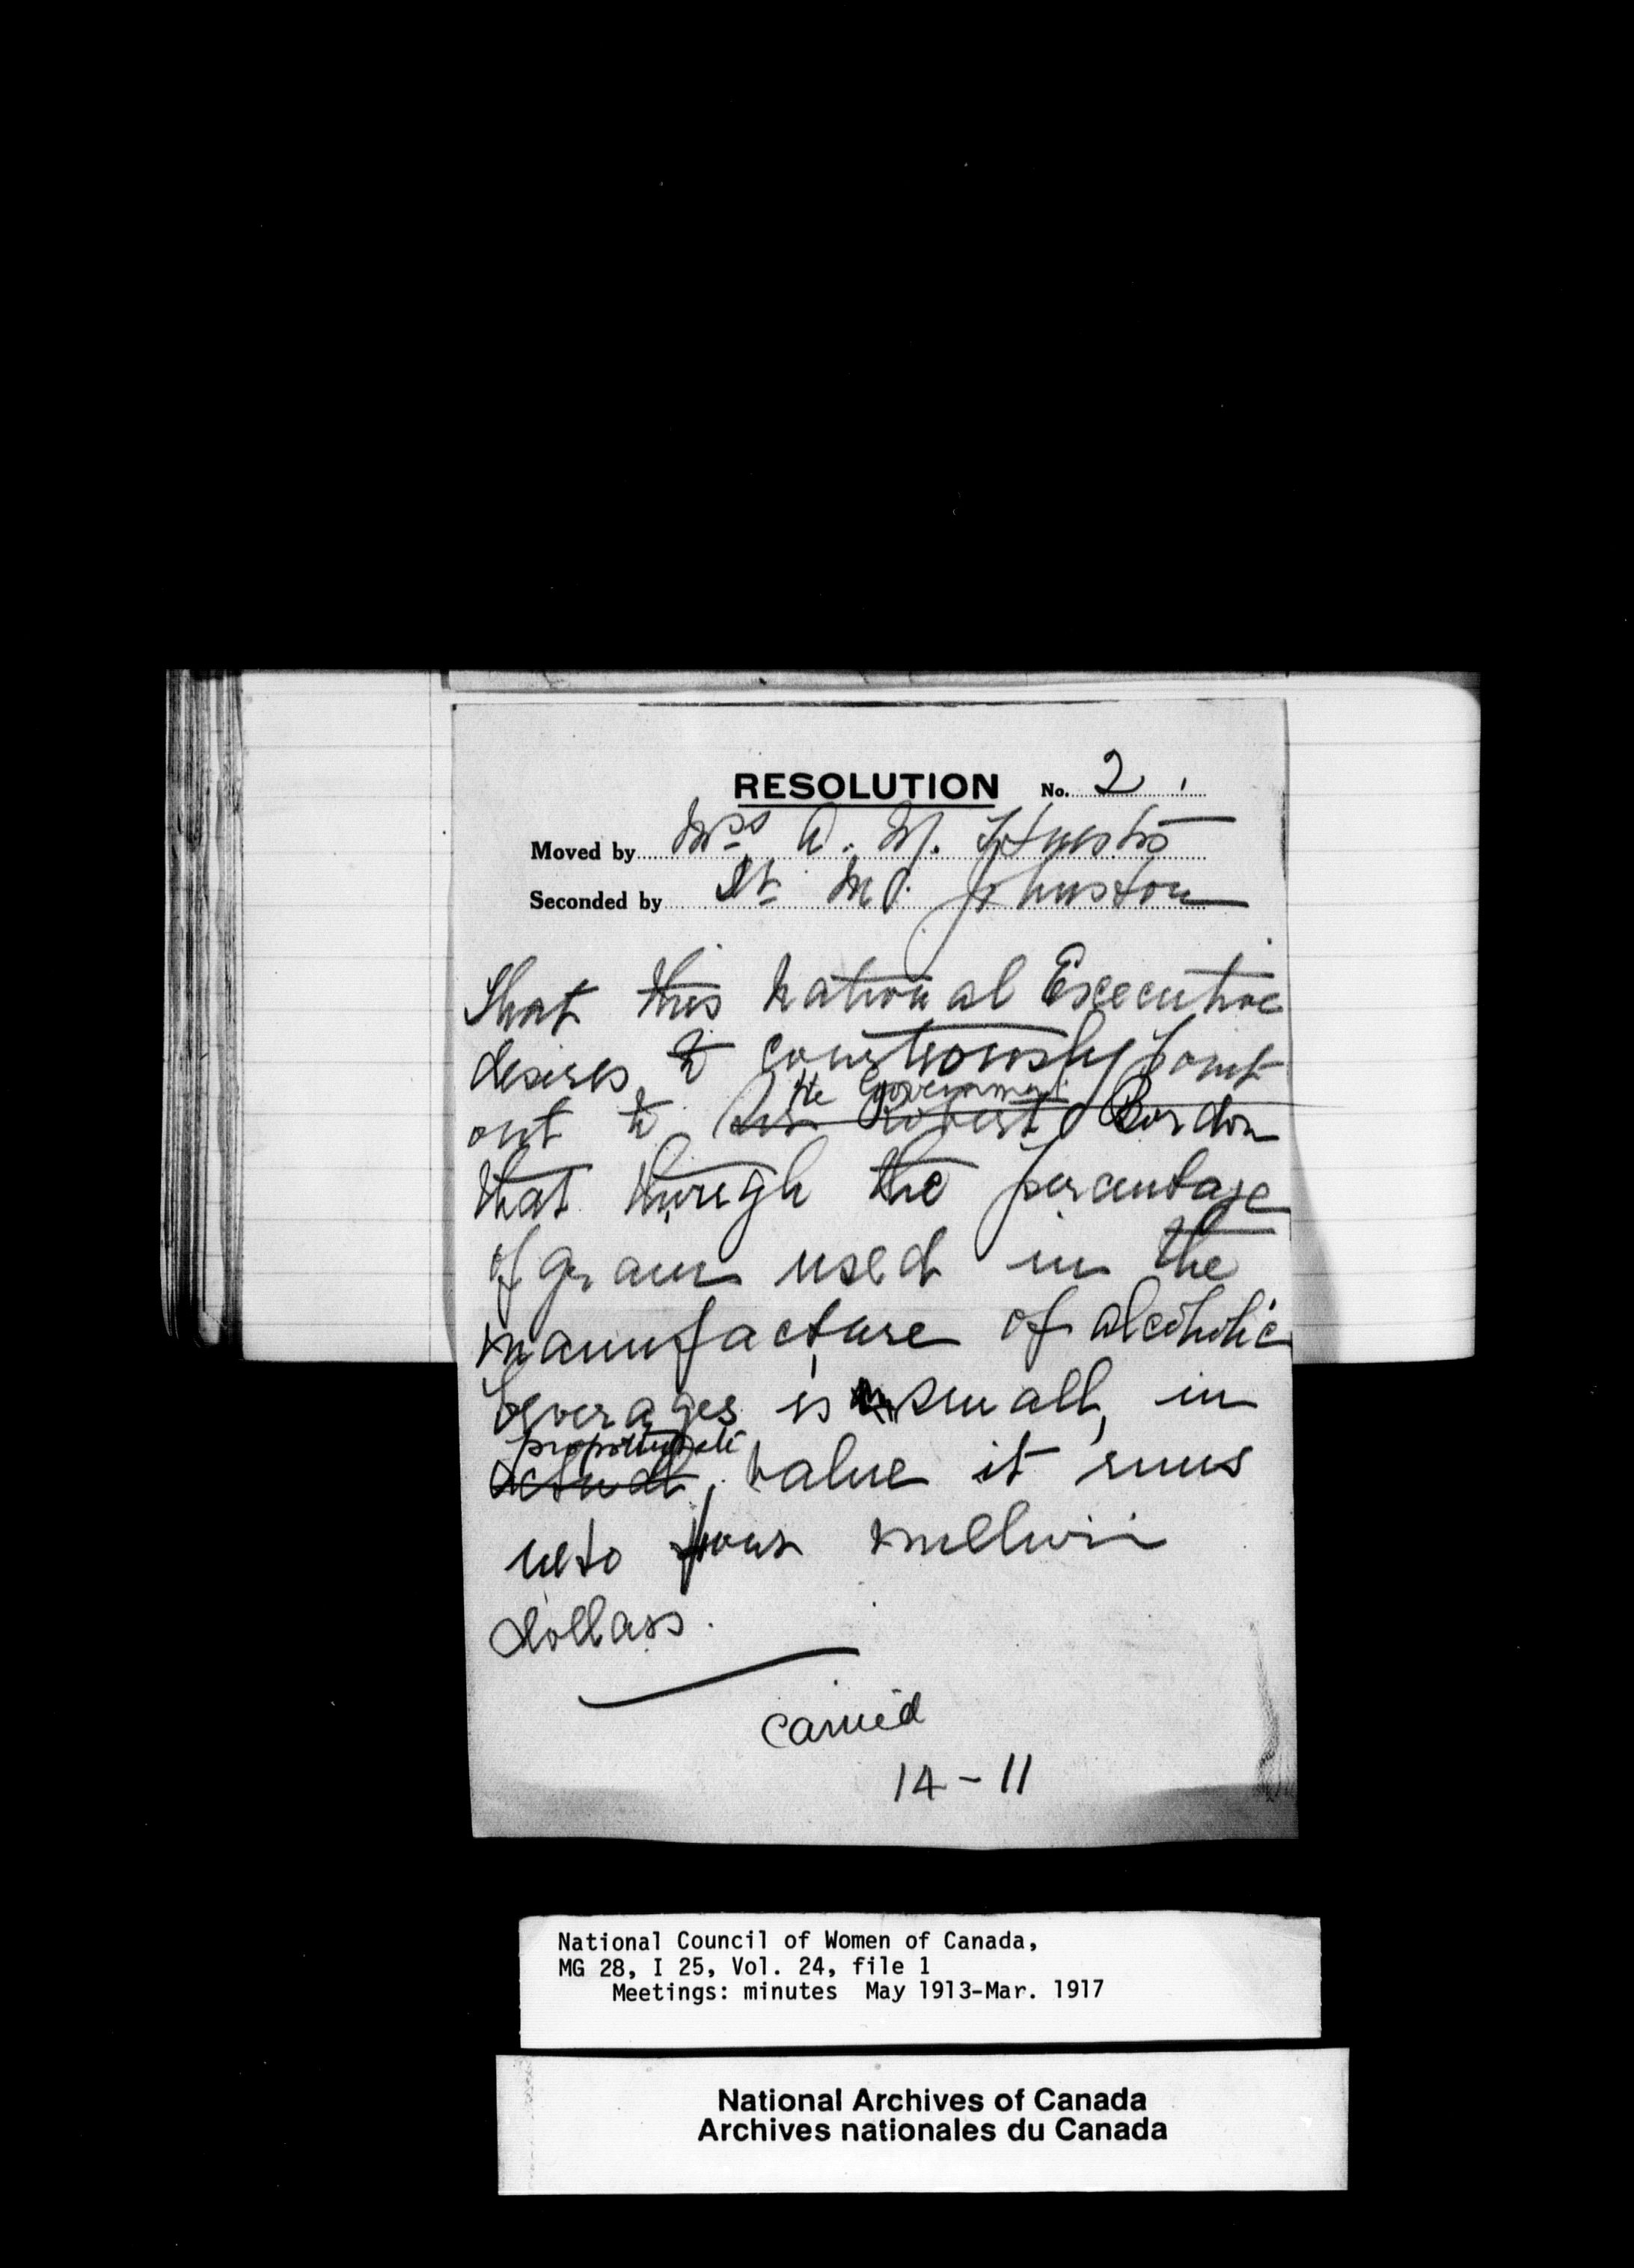 RESOLUTION No. 2.
Moved by Mrs A. M. Huestis
Seconded by Johnston
That this National Executive
desires to courteously point
the Government
out to Sir Robert Bordon
that though the percentage
of grain used in the
manufacture of alcoholic
beverages is small, in
proportionate
actual value it runs
into four million
dollars.
Carried
14-11
National Council of Women of Canada,
MG 28, I 25, Vol. 24, file 1
Meetings: minutes May 1913-Mar. 1917
National Archives of Canada
Archives nationales du Canada